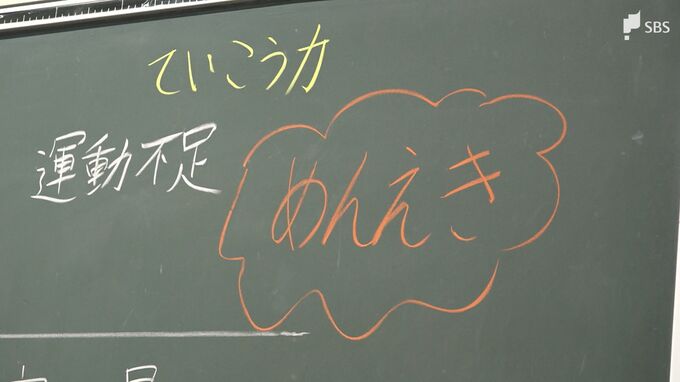 SBS
ていこう力
運動不足
めんえき